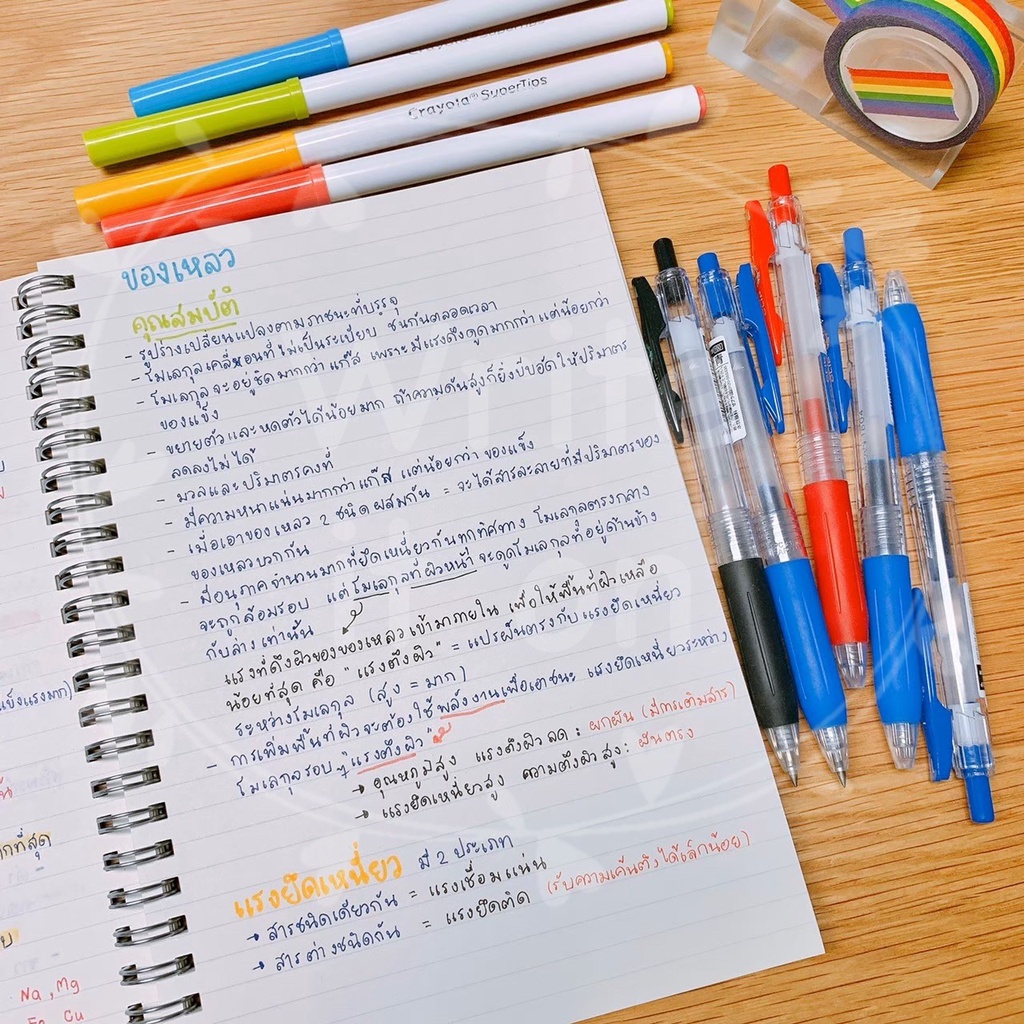 Crayola® SuperTips
ของเหลว
คุณสมบัติ
- รูปร่างเปลี่ยนแปลงตามภาชนะที่บรรจุ
- โมเลกุลเคลื่อนที่ไม่เป็นระเบียบ ชนกันตลอดเวลา
- โมเลกุลจะอยู่ชิดมากกว่าแก๊ส เพราะมีแรงดึงดูดมากกว่า แต่น้อยกว่า
ของแข็ง
- ขยายตัวและหดตัวได้น้อยมาก ถ้าความดันสูงก็ยิ่งบีบอัดให้ปริมาตร
ลดลงไม่ได้
- มวลและปริมาตรคงที่
- มีความหนาแน่นมากกว่าแก๊ส แต่น้อยกว่าของแข็ง
- เมื่อเอาของเหลว 2 ชนิดผสมกัน = จะได้สารละลายที่มีปริมาตรของ
ของเหลวบวกกัน
- มีอนุภาคจำนวนมากที่ยึดเหนี่ยวกันทุกทิศทาง โมเลกุลตรงกลาง
จะถูกล้อมรอบ แต่โมเลกุลที่ผิวหน้าจะดูดโมเลกุลที่อยู่ด้านข้าง
กับล่างเท่านั้น
แรงที่ดึงผิวของของเหลวเข้ามาภายใน เพื่อให้พื้นที่ผิวเหลือ
น้อยที่สุด คือ "แรงตึงผิว" = แปรผันตรงกับแรงยึดเหนี่ยว
ระหว่างโมเลกุล (สูง = มาก)
- การเพิ่มพื้นที่ผิวจะต้องใช้พลังงานเพื่อเอาชนะแรงยึดเหนี่ยวระหว่าง
โมเลกุลรอบๆ "แรงตึงผิว"
→ อุณหภูมิสูง แรงตึงผิวลด : ผกผัน (มีการเติมสาร)
→ แรงยึดเหนี่ยวสูง ความตึงผิวสูง : ผันตรง
แรงยึดเหนี่ยว มี 2 ประเภท
→ สารชนิดเดียวกัน = แรงเชื่อมแน่น
→ สารต่างชนิดกัน = แรงยึดติด (รับความเค้นตึงได้เล็กน้อย)
แข็งแรงมาก)
กที่สุด
Na, Mg
Cu
Write
it on